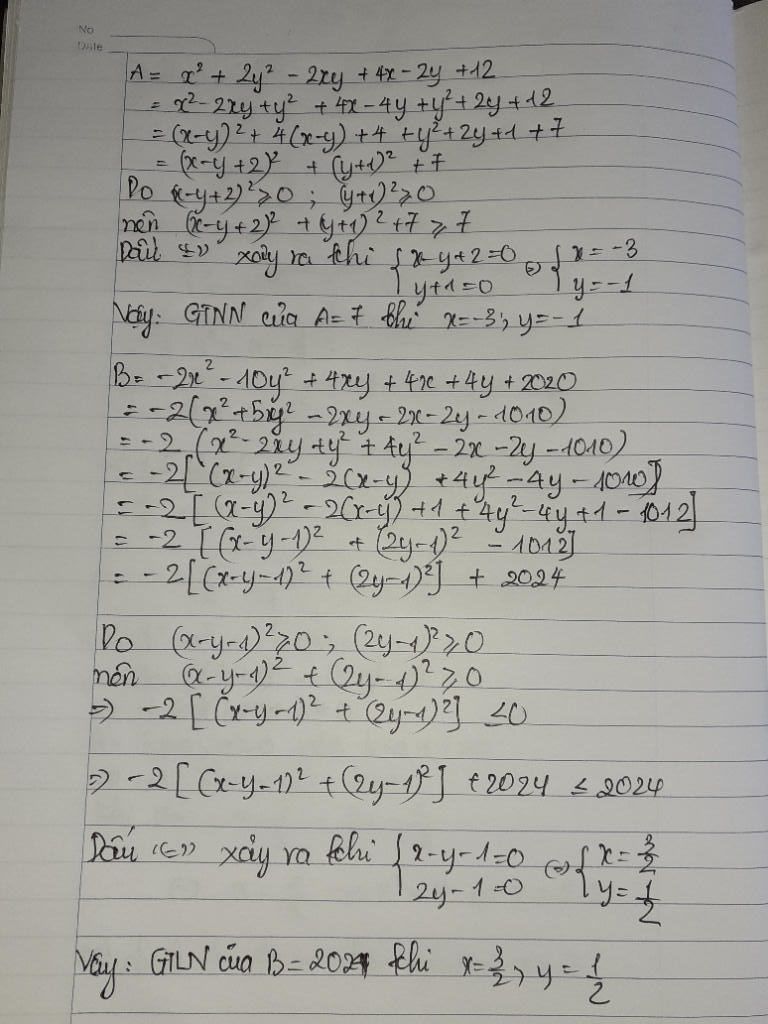 No
Date
A = x² + 2y² - 2xy + 4x - 2y + 12
= x² - 2xy + y² + 4x - 4y + y² + 2y + 12
= (x-y)² + 4(x-y) + 4 + y² + 2y + 1 + 7
= (x-y+2)² + (y+1)² + 7
Do (x-y+2)² ⩾ 0 ; (y+1)² ⩾ 0
nên (x-y+2)² + (y+1)² + 7 ⩾ 7
Dấu "=" xảy ra khi { x-y+2=0 ⇔ { x = -3
y+1=0 y = -1
Vậy: GTNN của A = 7 khi x = -3; y = -1
B = -2x² - 10y² + 4xy + 4x + 4y + 2020
= -2(x² + 5y² - 2xy - 2x - 2y - 1010)
= -2 (x² - 2xy + y² + 4y² - 2x - 2y - 1010)
= -2[ (x-y)² - 2(x-y) + 4y² - 4y - 1010]
= -2 [ (x-y)² - 2(x-y) + 1 + 4y² - 4y + 1 - 1012]
= -2 [(x-y-1)² + (2y-1)² - 1012]
= -2[(x-y-1)² + (2y-1)²] + 2024
Do (x-y-1)² ⩾ 0 ; (2y-1)² ⩾ 0
nên (x-y-1)² + (2y-1)² ⩾ 0
⇒ -2 [ (x-y-1)² + (2y-1)²] ≤ 0
⇒ -2 [ (x-y-1)² + (2y-1)²] + 2024 ≤ 2024
Dấu "=" xảy ra khi { x-y-1=0 ⇔ { x = 3/2
2y-1=0 y = 1/2
Vậy: GTLN của B = 2024 khi x = 3/2, y = 1/2